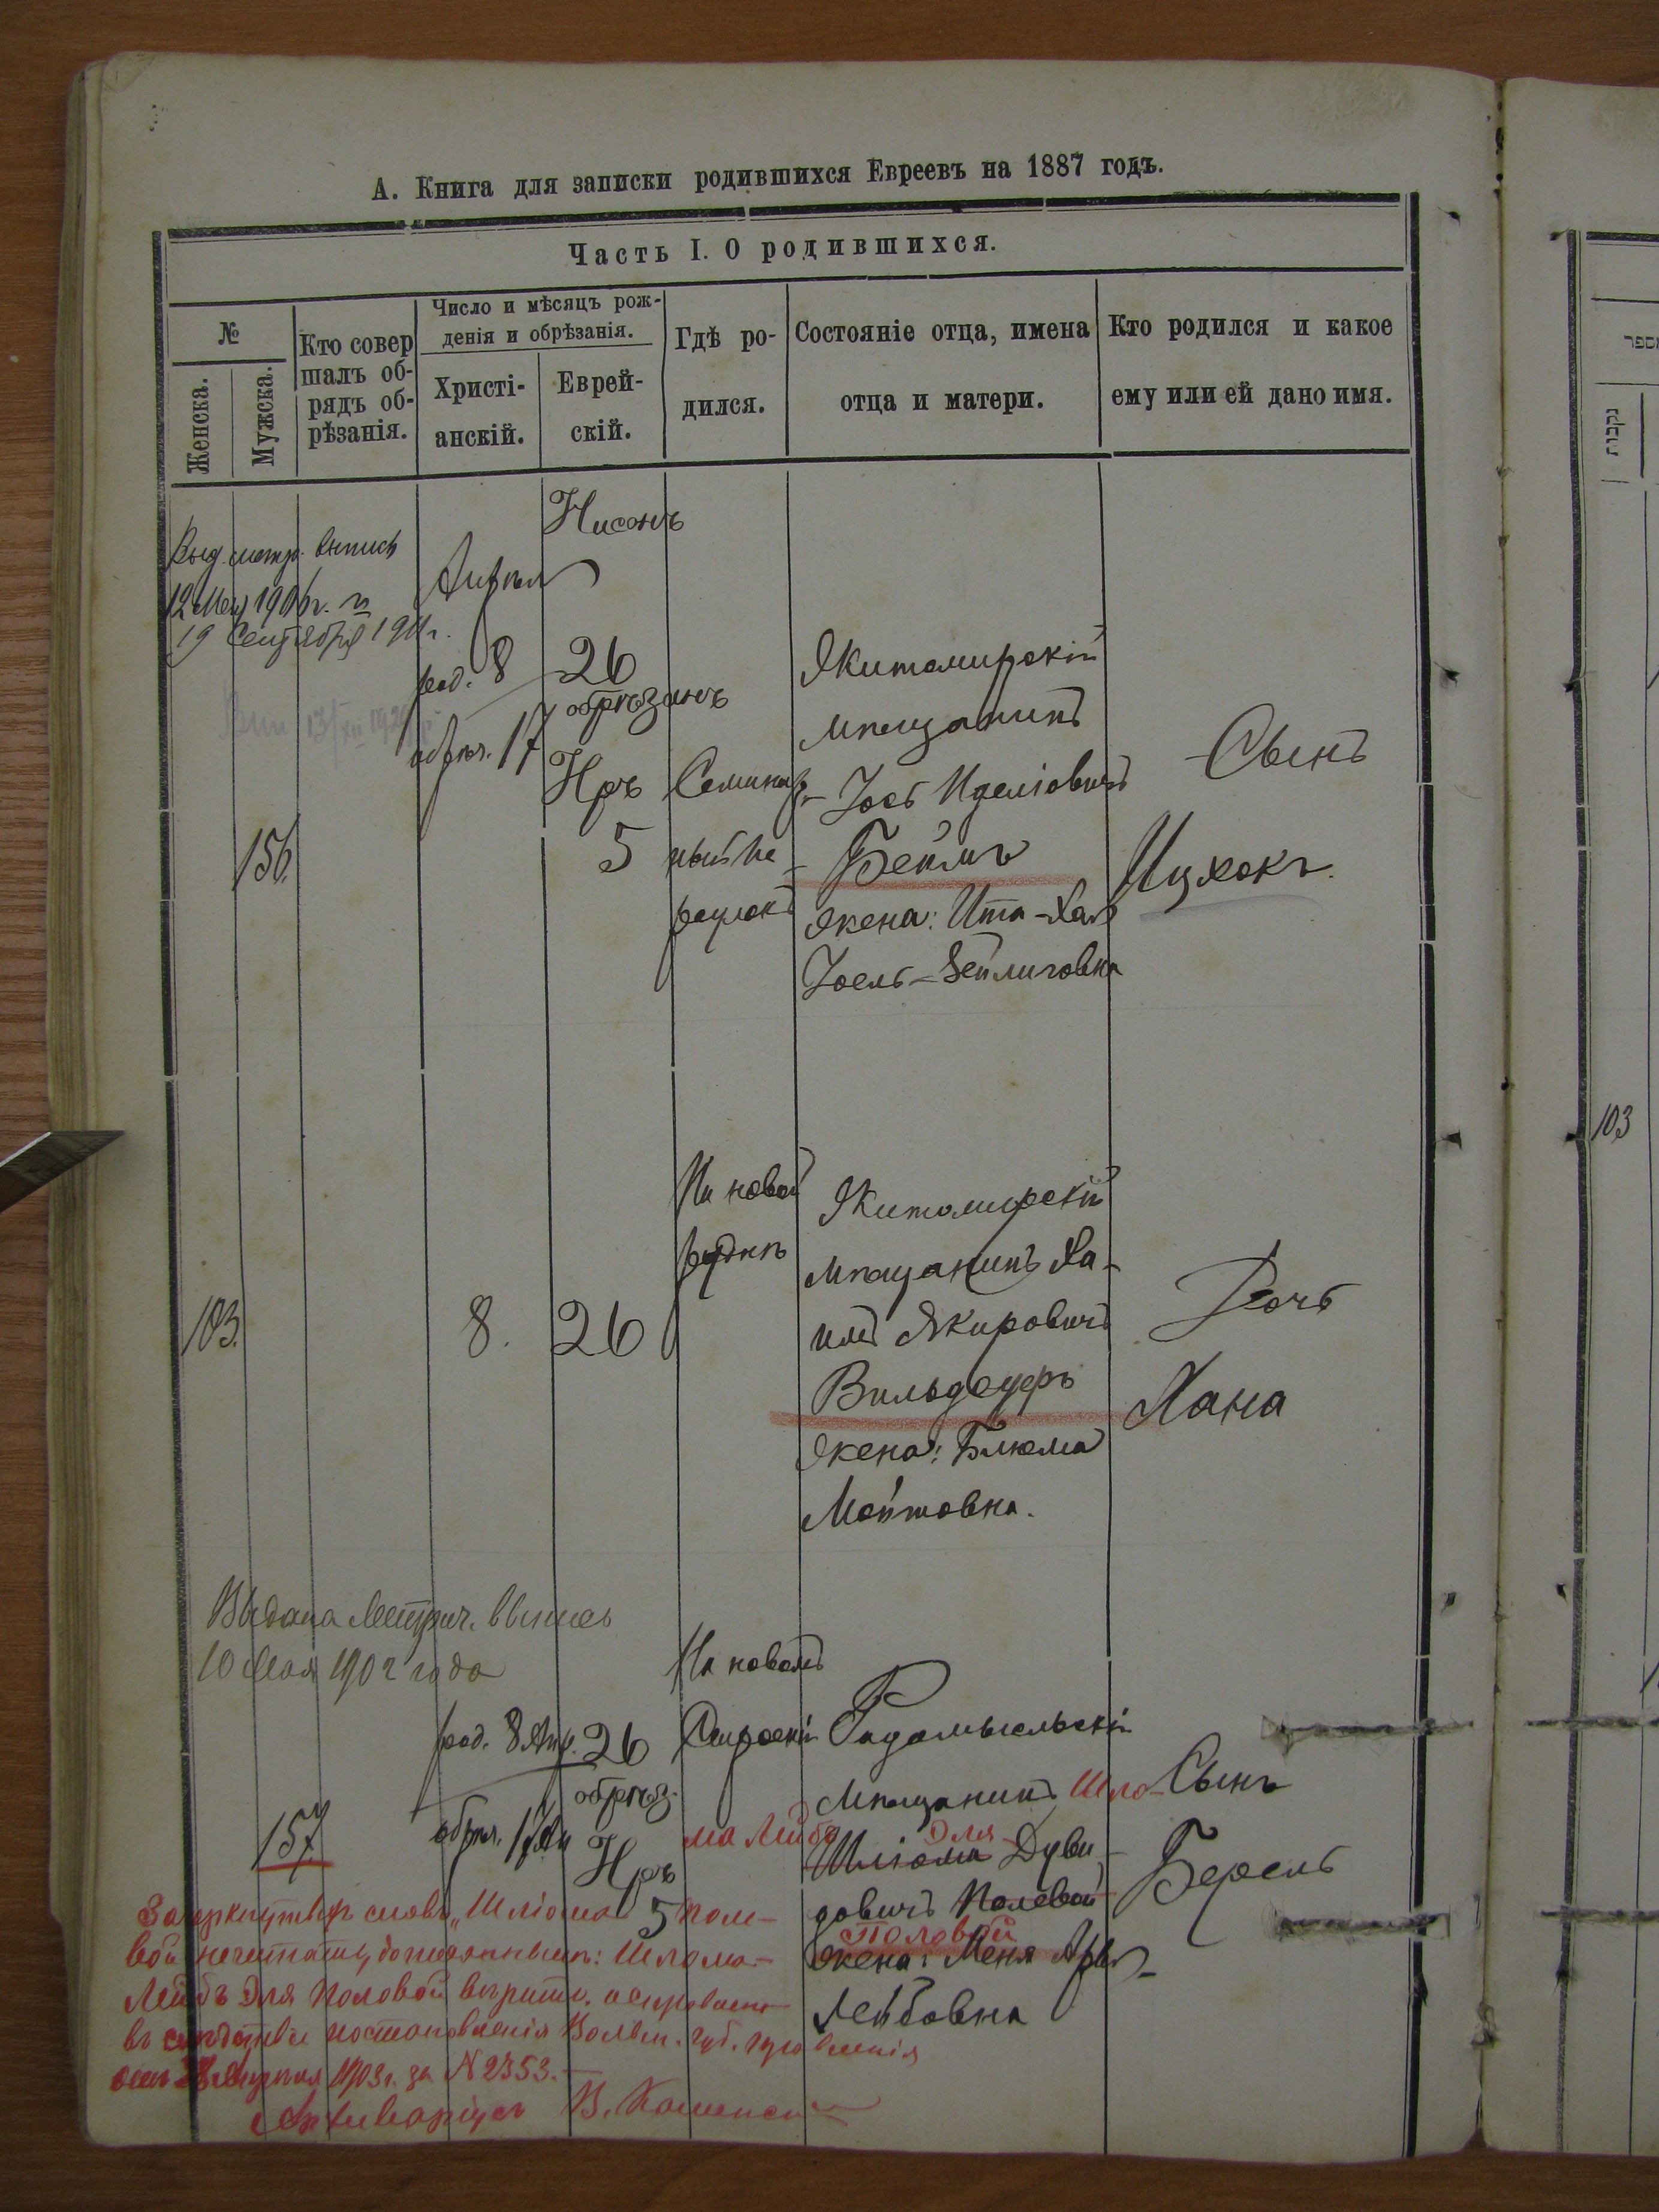 А. Книга для записки родившихся Евреевъ на 1887 годъ.
Часть I. О родившихся.
№
Женска.
Мужска.
Кто совер
шалъ об-
рядъ об-
рѣзанія.
Число и мѣсяцъ рож-
денія и обрѣзанія.
Христі-
анскій.
Еврей-
скій.
Гдѣ ро-
дился.
Состояніе отца, имена
отца и матери.
Кто родился и какое
ему или ей дано имя.
Выд. метр. выпись
12 Мая 1906 г. и
19 Сентября 1911 г.
Нисонъ
Апрѣля
156.
род. 8
обрѣз. 17
26
обрѣзанъ
Іръ
5
Семинар-
ный пе
реулокъ
Житомирскій
мѣщанинъ
Іось Иделіовичъ
Беймъ
жена: Ита-Хая
Іоель-Зейлиговна
Сынъ
Ицхокъ.
103.
8.
26
На новой
рудкѣ
Житомирскій
мѣщанинъ Ха-
имъ Якировичъ
Вильдауеръ
жена: Блюма
Мойтовна.
Дочь
Хана
Выдана Метрич. выпись
10 Мая 1902 года
157.
род. 8 Апр.
обрѣз. 17 Ап
26
обрѣз.
Іръ
5
На новомъ
Радомысльскій
мѣщанинъ Шло-
ма Лейбъ Эля
Шліома Дуви-
довичъ Полевой
Половой
жена: Меня Арья-
Лейбовна
Сынъ
Берель
Зачеркнутыхъ словъ „Шліома Поле-
вой" не читать, дописаннымъ: Шлома-
Лейбъ Эля Половой вѣрить. исправлено
въ слѣдствіе постановленія Волын. губ. правленія
отъ 28 Апрѣля 1903 г. за № 2353.—
Архиваріусъ В. Каменскій
ספר
נקבות
103